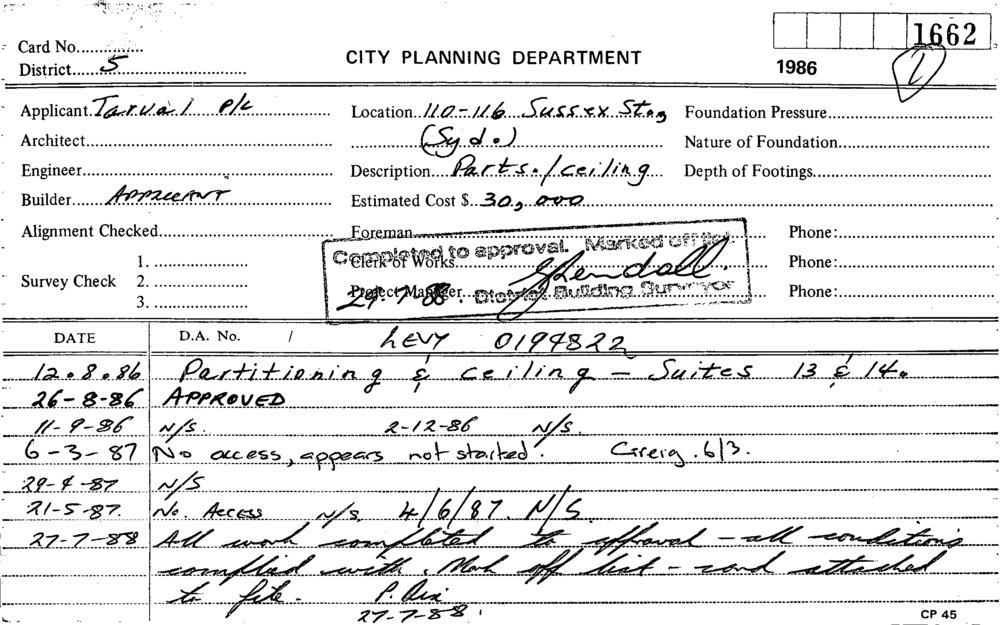 1662
Card No...............
District.....5
CITY PLANNING DEPARTMENT
1986
1
Applicant Tarval P/L
Location 110-116 Sussex St.,
Foundation Pressure
Architect
(Syd.)
Nature of Foundation
Engineer
Description Parts./ceiling
Depth of Footings
Builder APPLICANT
Estimated Cost $ 30,000
Alignment Checked
Foreman
Phone:
Completed to approval. Marked off list.
Survey Check 1.
Clerk of Works
Phone:
2.
3.
Project Manager
Phone:
29-7-88 District Building Surveyor
DATE D.A. No. / LEVY 0194822
12.8.86 Partitioning & ceiling - Suites 13 & 14.
26-8-86 APPROVED
11-9-86 N/S. 2-12-86 N/S.
6-3-87 No access, appears not started. Greig. 6/3.
29-4-87 N/S
21-5-87. No. Access N/S. 4/6/87. N/S.
27-7-88 All work completed to approval - all conditions
complied with. Mark off list - card attached
to file. P. Dix
27-7-88.
CP 45